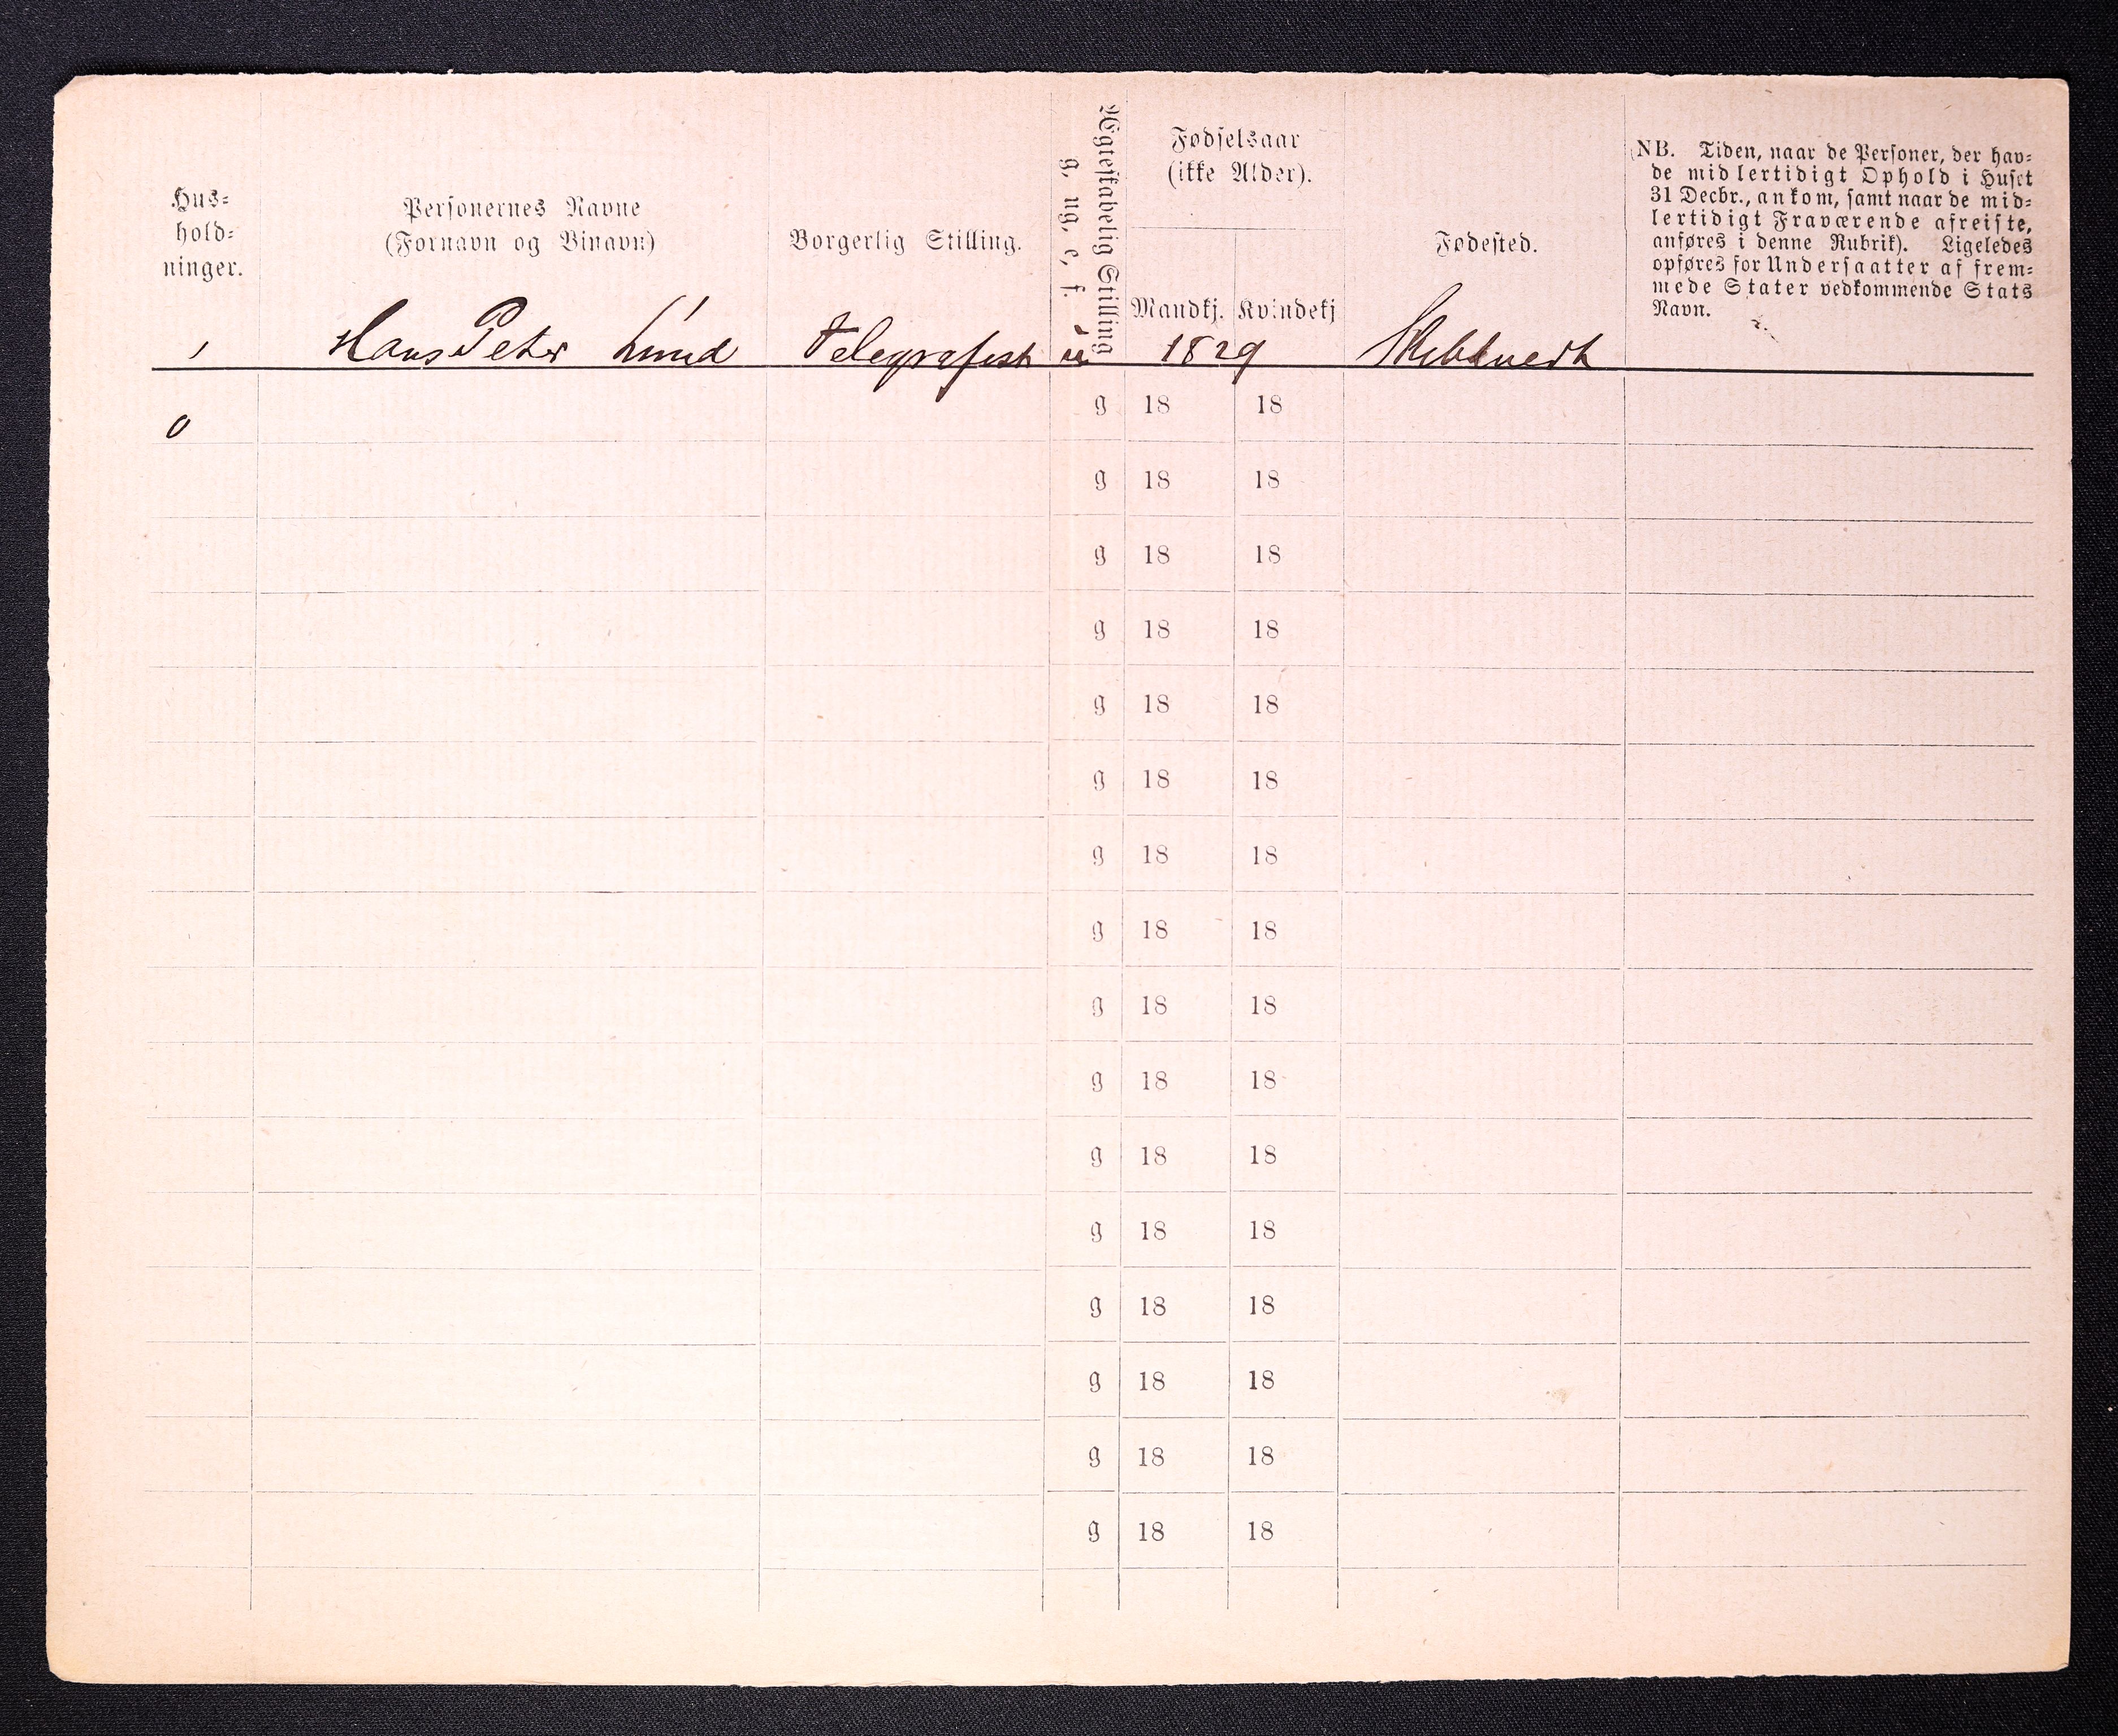 Hus=
hold=
ninger.
Personernes Navne
(Fornavn og Binavn)
Borgerlig Stilling.
Ægteskabelig Stilling
g, ug, e, f.
Fødselsaar
(ikke Alder).
Mandkj. Kvindekj
Fødested.
NB. Tiden, naar de Personer, der hav=
de midlertidigt Ophold i Huset
31 Decbr., ankom, samt naar de mid=
lertidigt Fraværende afreiste,
anføres i denne Rubrik). Ligeledes
opføres for Undersaatter af frem=
mede Stater vedkommende Stats
Navn.
1 Hans Peter Lund Telegrafist 1829
0 g 18 18
g 18 18
g 18 18
g 18 18
g 18 18
g 18 18
g 18 18
g 18 18
g 18 18
g 18 18
g 18 18
g 18 18
g 18 18
g 18 18
g 18 18
g 18 18